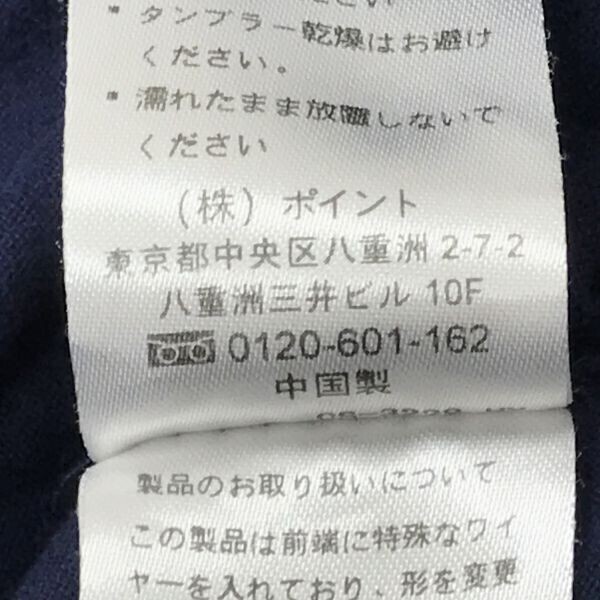 ください
* タンブラー乾燥はお避け
ください。
* 濡れたまま放置しないで
ください
(株) ポイント
東京都中央区八重洲 2-7-2
八重洲三井ビル 10F
0120-601-162
中国製
製品のお取り扱いについて
この製品は前端に特殊なワイ
ヤーを入れており、形を変更